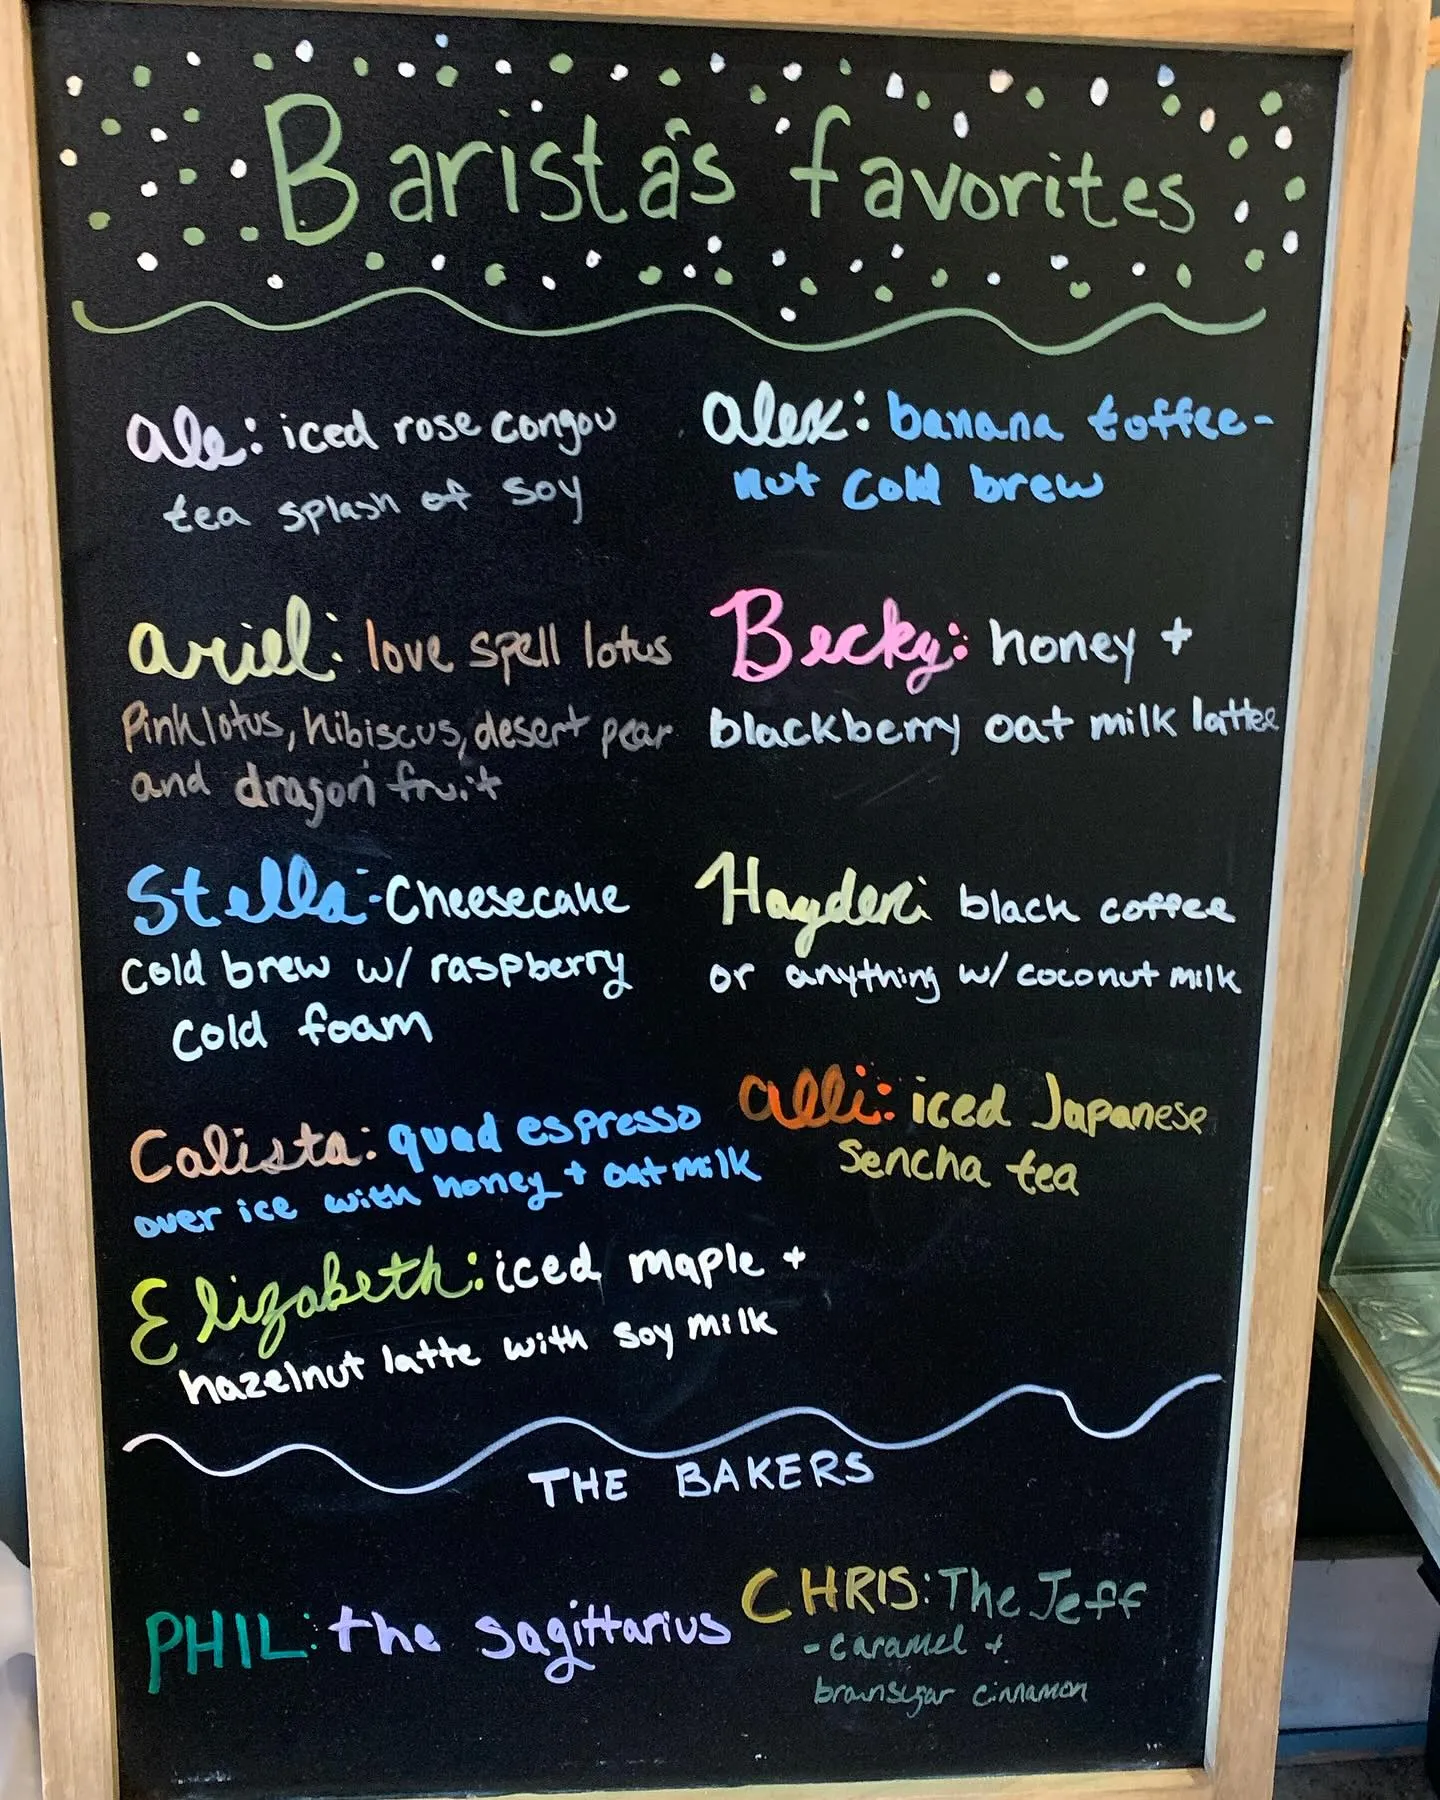 Barista's favorites
Ale: iced rose congou
tea splash of soy
Alex: banana toffee-
nut cold brew
Ariel: love spell lotus
Pink lotus, hibiscus, desert pear
and dragon fruit
Becky: honey +
blackberry oat milk lattee
Stella: Cheesecake
Cold brew w/ raspberry
cold foam
Hayden: black coffee
or anything w/ coconut milk
Calista: quad espresso
over ice with honey + oat milk
Alli: iced Japanese
Sencha tea
Elizabeth: iced maple +
hazelnut latte with soy milk
THE BAKERS
PHIL: the sagittarius
CHRIS: The Jeff
- caramel +
brownsugar cinnamon